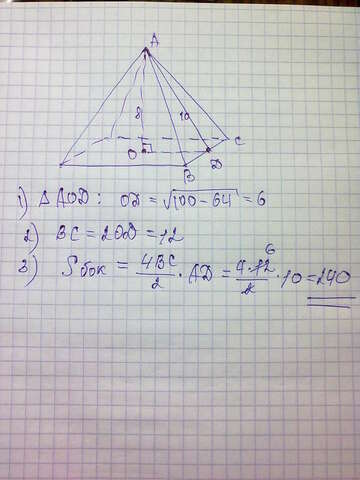 A
8
10
O
C
B
D
1) ΔAOD: OD = √100-64 = 6
2) BC = 2OD = 12
3) Sбок = 4BC/2 · AD = 4·12/2 · 10 = 240
6